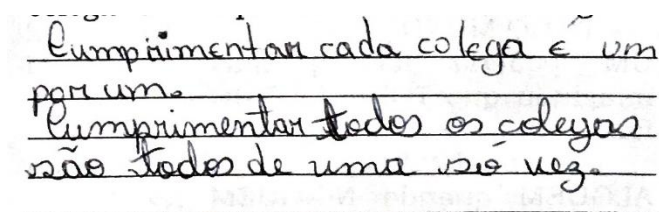 Cumprimentar cada colega é um
por um.
Cumprimentar todos os colegas
são todos de uma só vez.